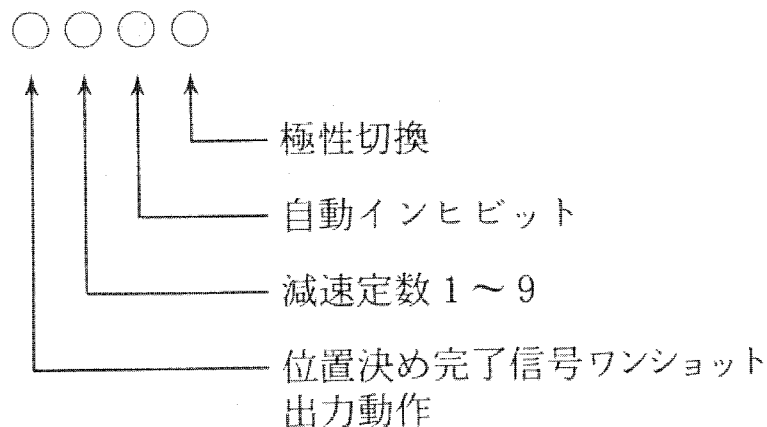 ○○○○
極性切換
自動インヒビット
減速定数1～9
位置決め完了信号ワンショット
出力動作